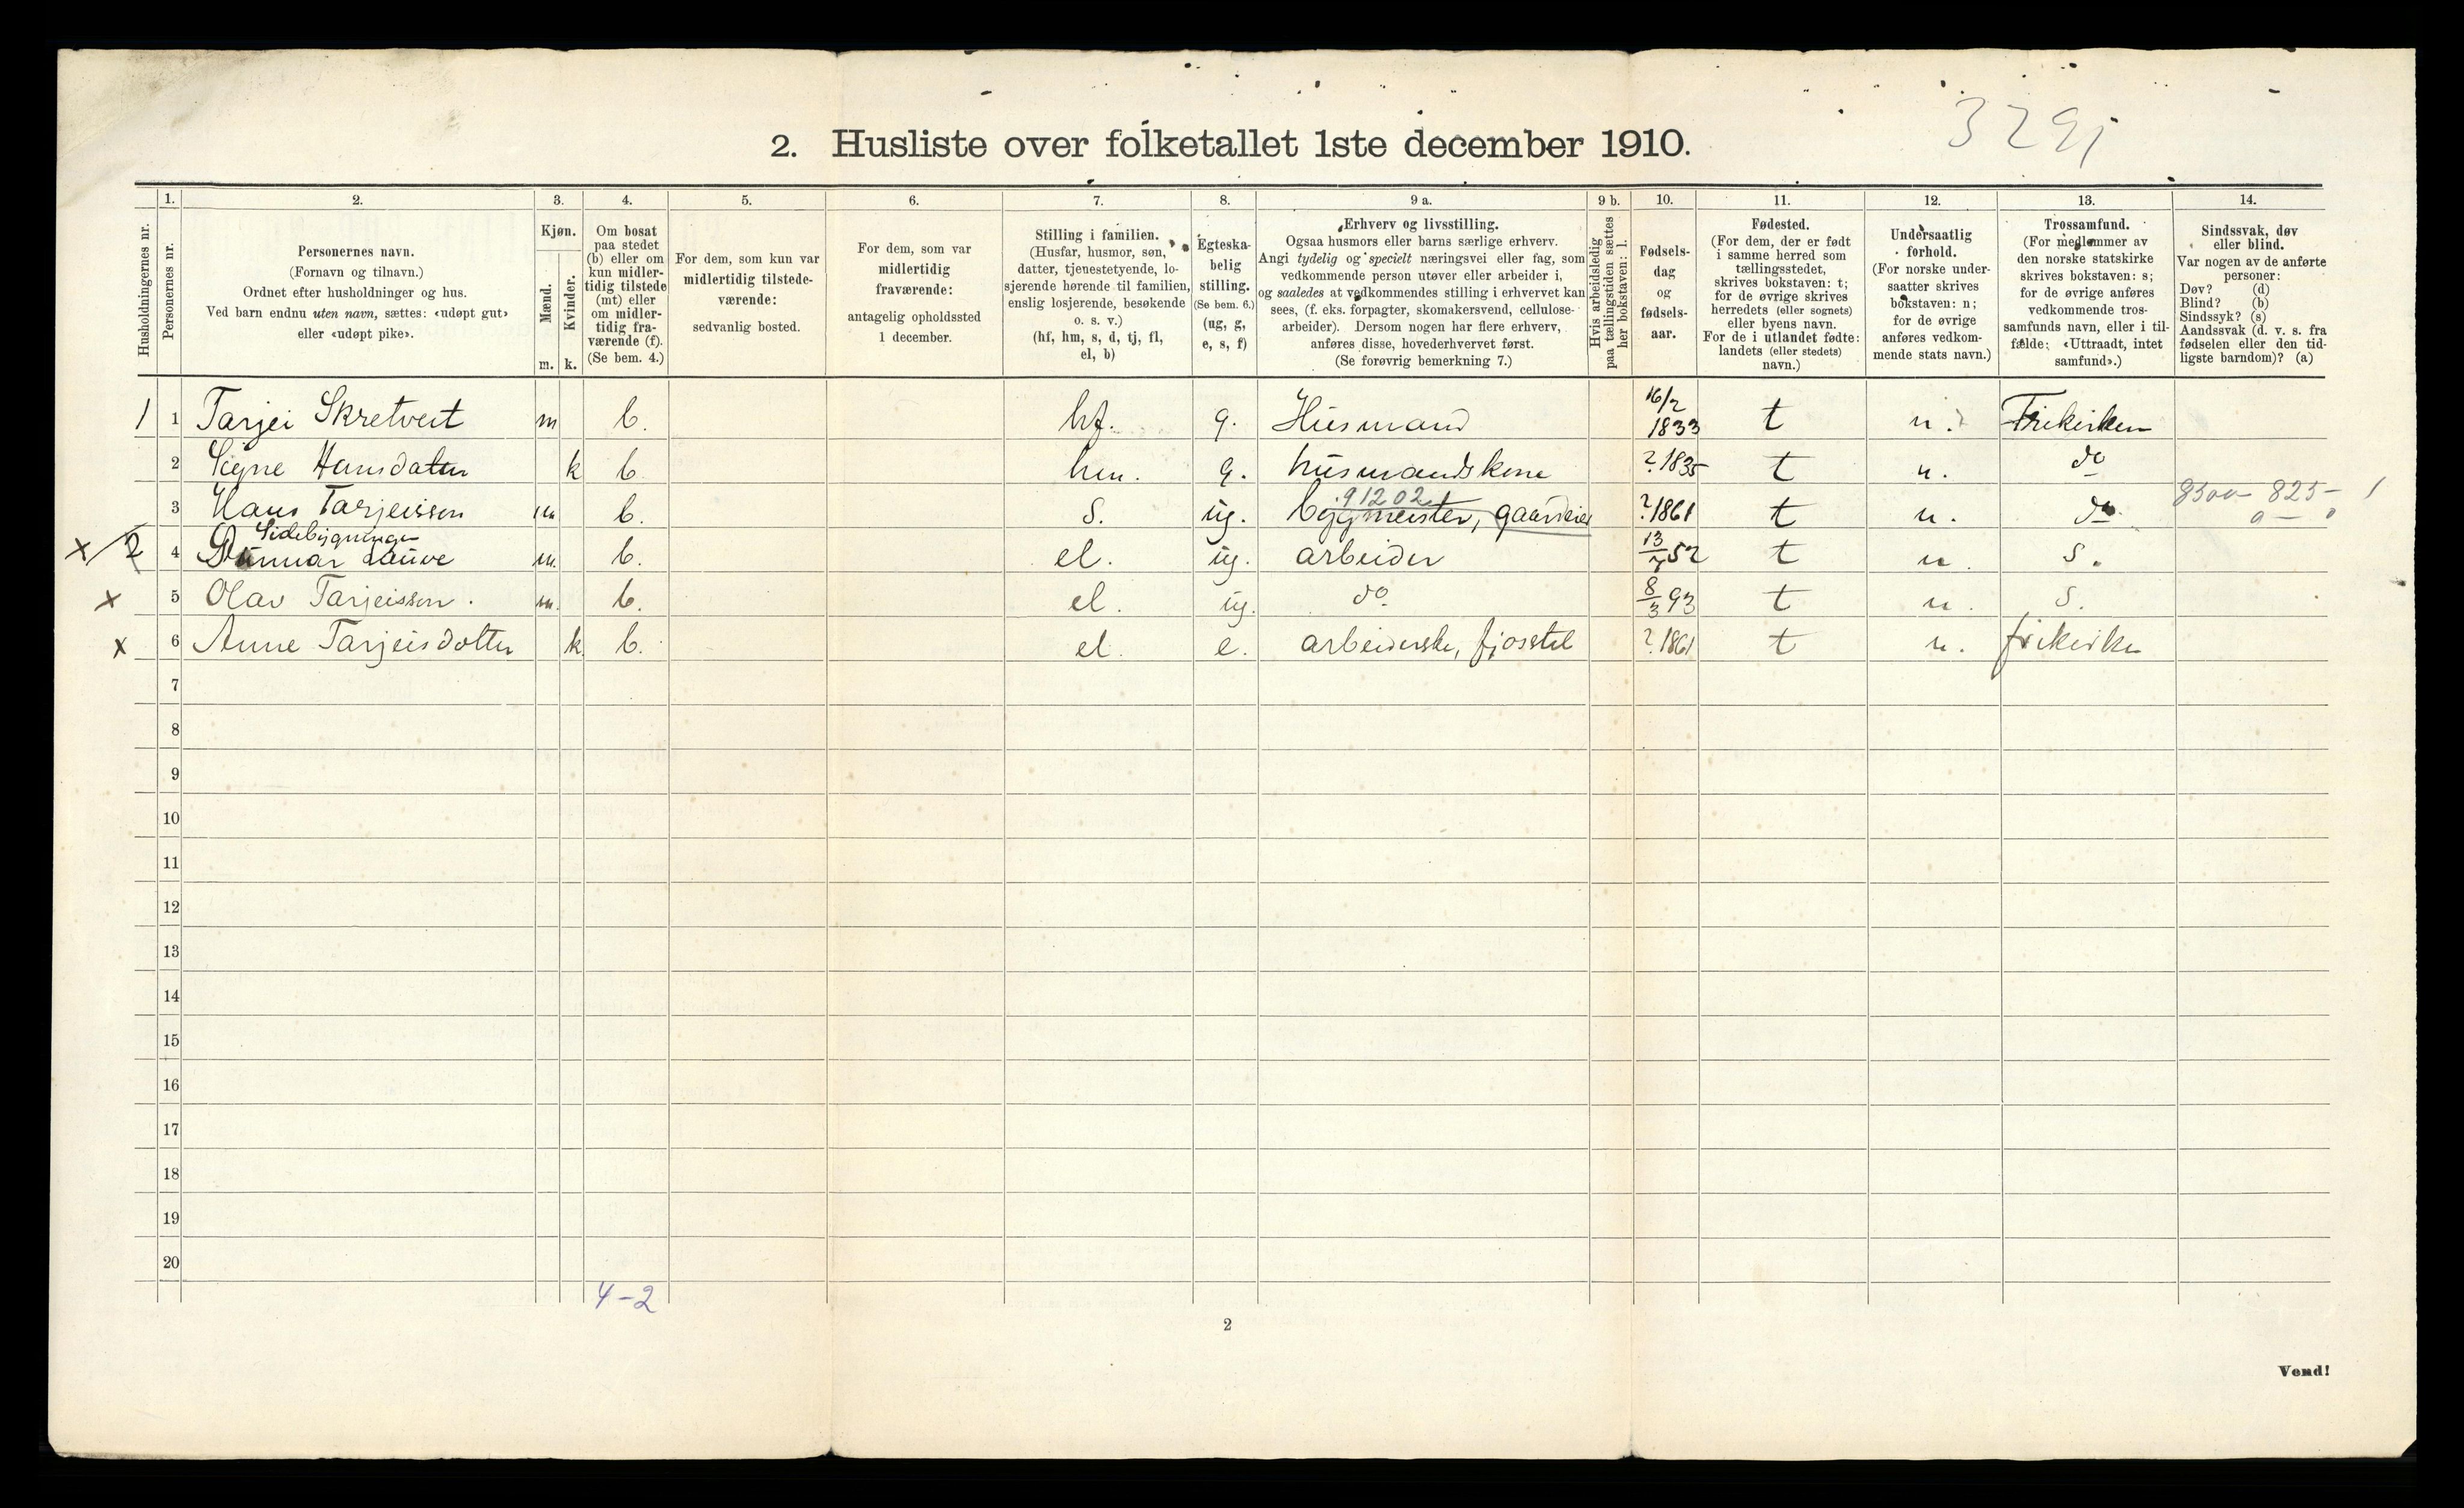 3291
2. Husliste over folketallet 1ste december 1910.
Husholdningernes nr.
1.
Personernes nr.
2.
Personernes navn.
(Fornavn og tilnavn.)
Ordnet efter husholdninger og hus.
Ved barn endnu uten navn, sættes: «udøpt gut»
eller «udøpt pike».
3.
Kjøn.
Mænd.
Kvinder.
m. k.
4.
Om bosat
paa stedet
(b) eller om
kun midler-
tidig tilstede
(mt) eller
om midler-
tidig fra-
værende (f).
(Se bem. 4.)
5.
For dem, som kun var
midlertidig tilstede-
værende:
sedvanlig bosted.
6.
For dem, som var
midlertidig
fraværende:
antagelig opholdssted
1 december.
7.
Stilling i familien.
(Husfar, husmor, søn,
datter, tjenestetyende, lo-
sjerende hørende til familien,
enslig losjerende, besøkende
o. s. v.)
(hf, hm, s, d, tj, fl,
el, b)
8.
Egteska-
belig
stilling.
(Se bem. 6.)
(ug, g,
e, s, f)
9 a.
Erhverv og livsstilling.
Ogsaa husmors eller barns særlige erhverv.
Angi tydelig og specielt næringsvei eller fag, som
vedkommende person utøver eller arbeider i,
og saaledes at vedkommendes stilling i erhvervet kan
sees, (f. eks. forpagter, skomakersvend, cellulose-
arbeider). Dersom nogen har flere erhverv,
anføres disse, hovederhvervet først.
(Se forøvrig bemerkning 7.)
9 b.
Hvis arbeidsledig
paa tællingstiden sættes
her bokstaven: l.
10.
Fødsels-
dag
og
fødsels-
aar.
11.
Fødested.
(For dem, der er født
i samme herred som
tællingsstedet,
skrives bokstaven: t;
for de øvrige skrives
herredets (eller sognets)
eller byens navn.
For de i utlandet fødte:
landets (eller stedets)
navn.)
12.
Undersaatlig
forhold.
(For norske under-
saatter skrives
bokstaven: n;
for de øvrige
anføres vedkom-
mende stats navn.)
13.
Trossamfund.
(For medlemmer av
den norske statskirke
skrives bokstaven: s;
for de øvrige anføres
vedkommende tros-
samfunds navn, eller i til-
fælde: «Uttraadt, intet
samfund».)
14.
Sindssvak, døv
eller blind.
Var nogen av de anførte
personer:
Døv? (d)
Blind? (b)
Sindssyk? (s)
Aandssvak (d. v. s. fra
fødselen eller den tid-
ligste barndom)? (a)
1 1 Tarjei Skretveit m b. hf. g. Husmand 16/2 1833 t n. Frikirken
2 Signe Hansdatter k b. hm. g. husmandskone ? 1835 t n. do
3 Hans Tarjeisson m b. s. ug. byggmeister, gaardeier ? 1861 t n. do
91202
8300 - 825 - 1
0 - 0
Sidebygningen
x 2 4 Gunnar Lauve m. b. el. ug. arbeider 13/7 52 t n. s.
x 5 Olav Tarjeisson. m. b. el. ug. do 8/3 93 t n. s.
x 6 Anne Tarjeisdotter k. b. el. e. arbeiderske, fjosstel ? 1861 t n. frikirken
7
8
9
10
11
12
13
14
15
16
17
18
19
20
4-2
2
Vend!